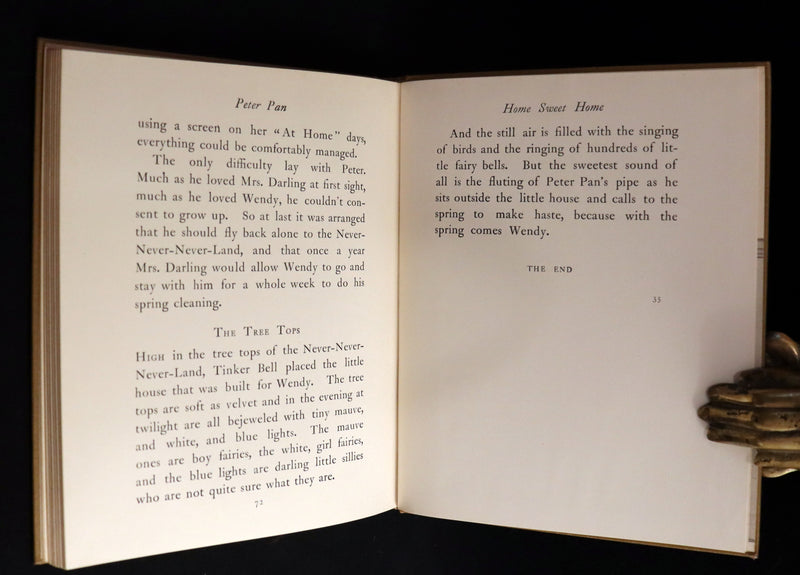 Peter Pan
using a screen on her "At Home" days,
everything could be comfortably managed.
The only difficulty lay with Peter.
Much as he loved Mrs. Darling at first sight,
much as he loved Wendy, he couldn't con-
sent to grow up. So at last it was arranged
that he should fly back alone to the Never-
Never-Never-Land, and that once a year
Mrs. Darling would allow Wendy to go and
stay with him for a whole week to do his
spring cleaning.
The Tree Tops
High in the tree tops of the Never-Never-
Never-Land, Tinker Bell placed the little
house that was built for Wendy. The tree
tops are soft as velvet and in the evening at
twilight are all bejeweled with tiny mauve,
and white, and blue lights. The mauve
ones are boy fairies, the white, girl fairies,
and the blue lights are darling little sillies
who are not quite sure what they are.
72
Home Sweet Home
And the still air is filled with the singing
of birds and the ringing of hundreds of lit-
tle fairy bells. But the sweetest sound of
all is the fluting of Peter Pan's pipe as he
sits outside the little house and calls to the
spring to make haste, because with the
spring comes Wendy.
THE END
35